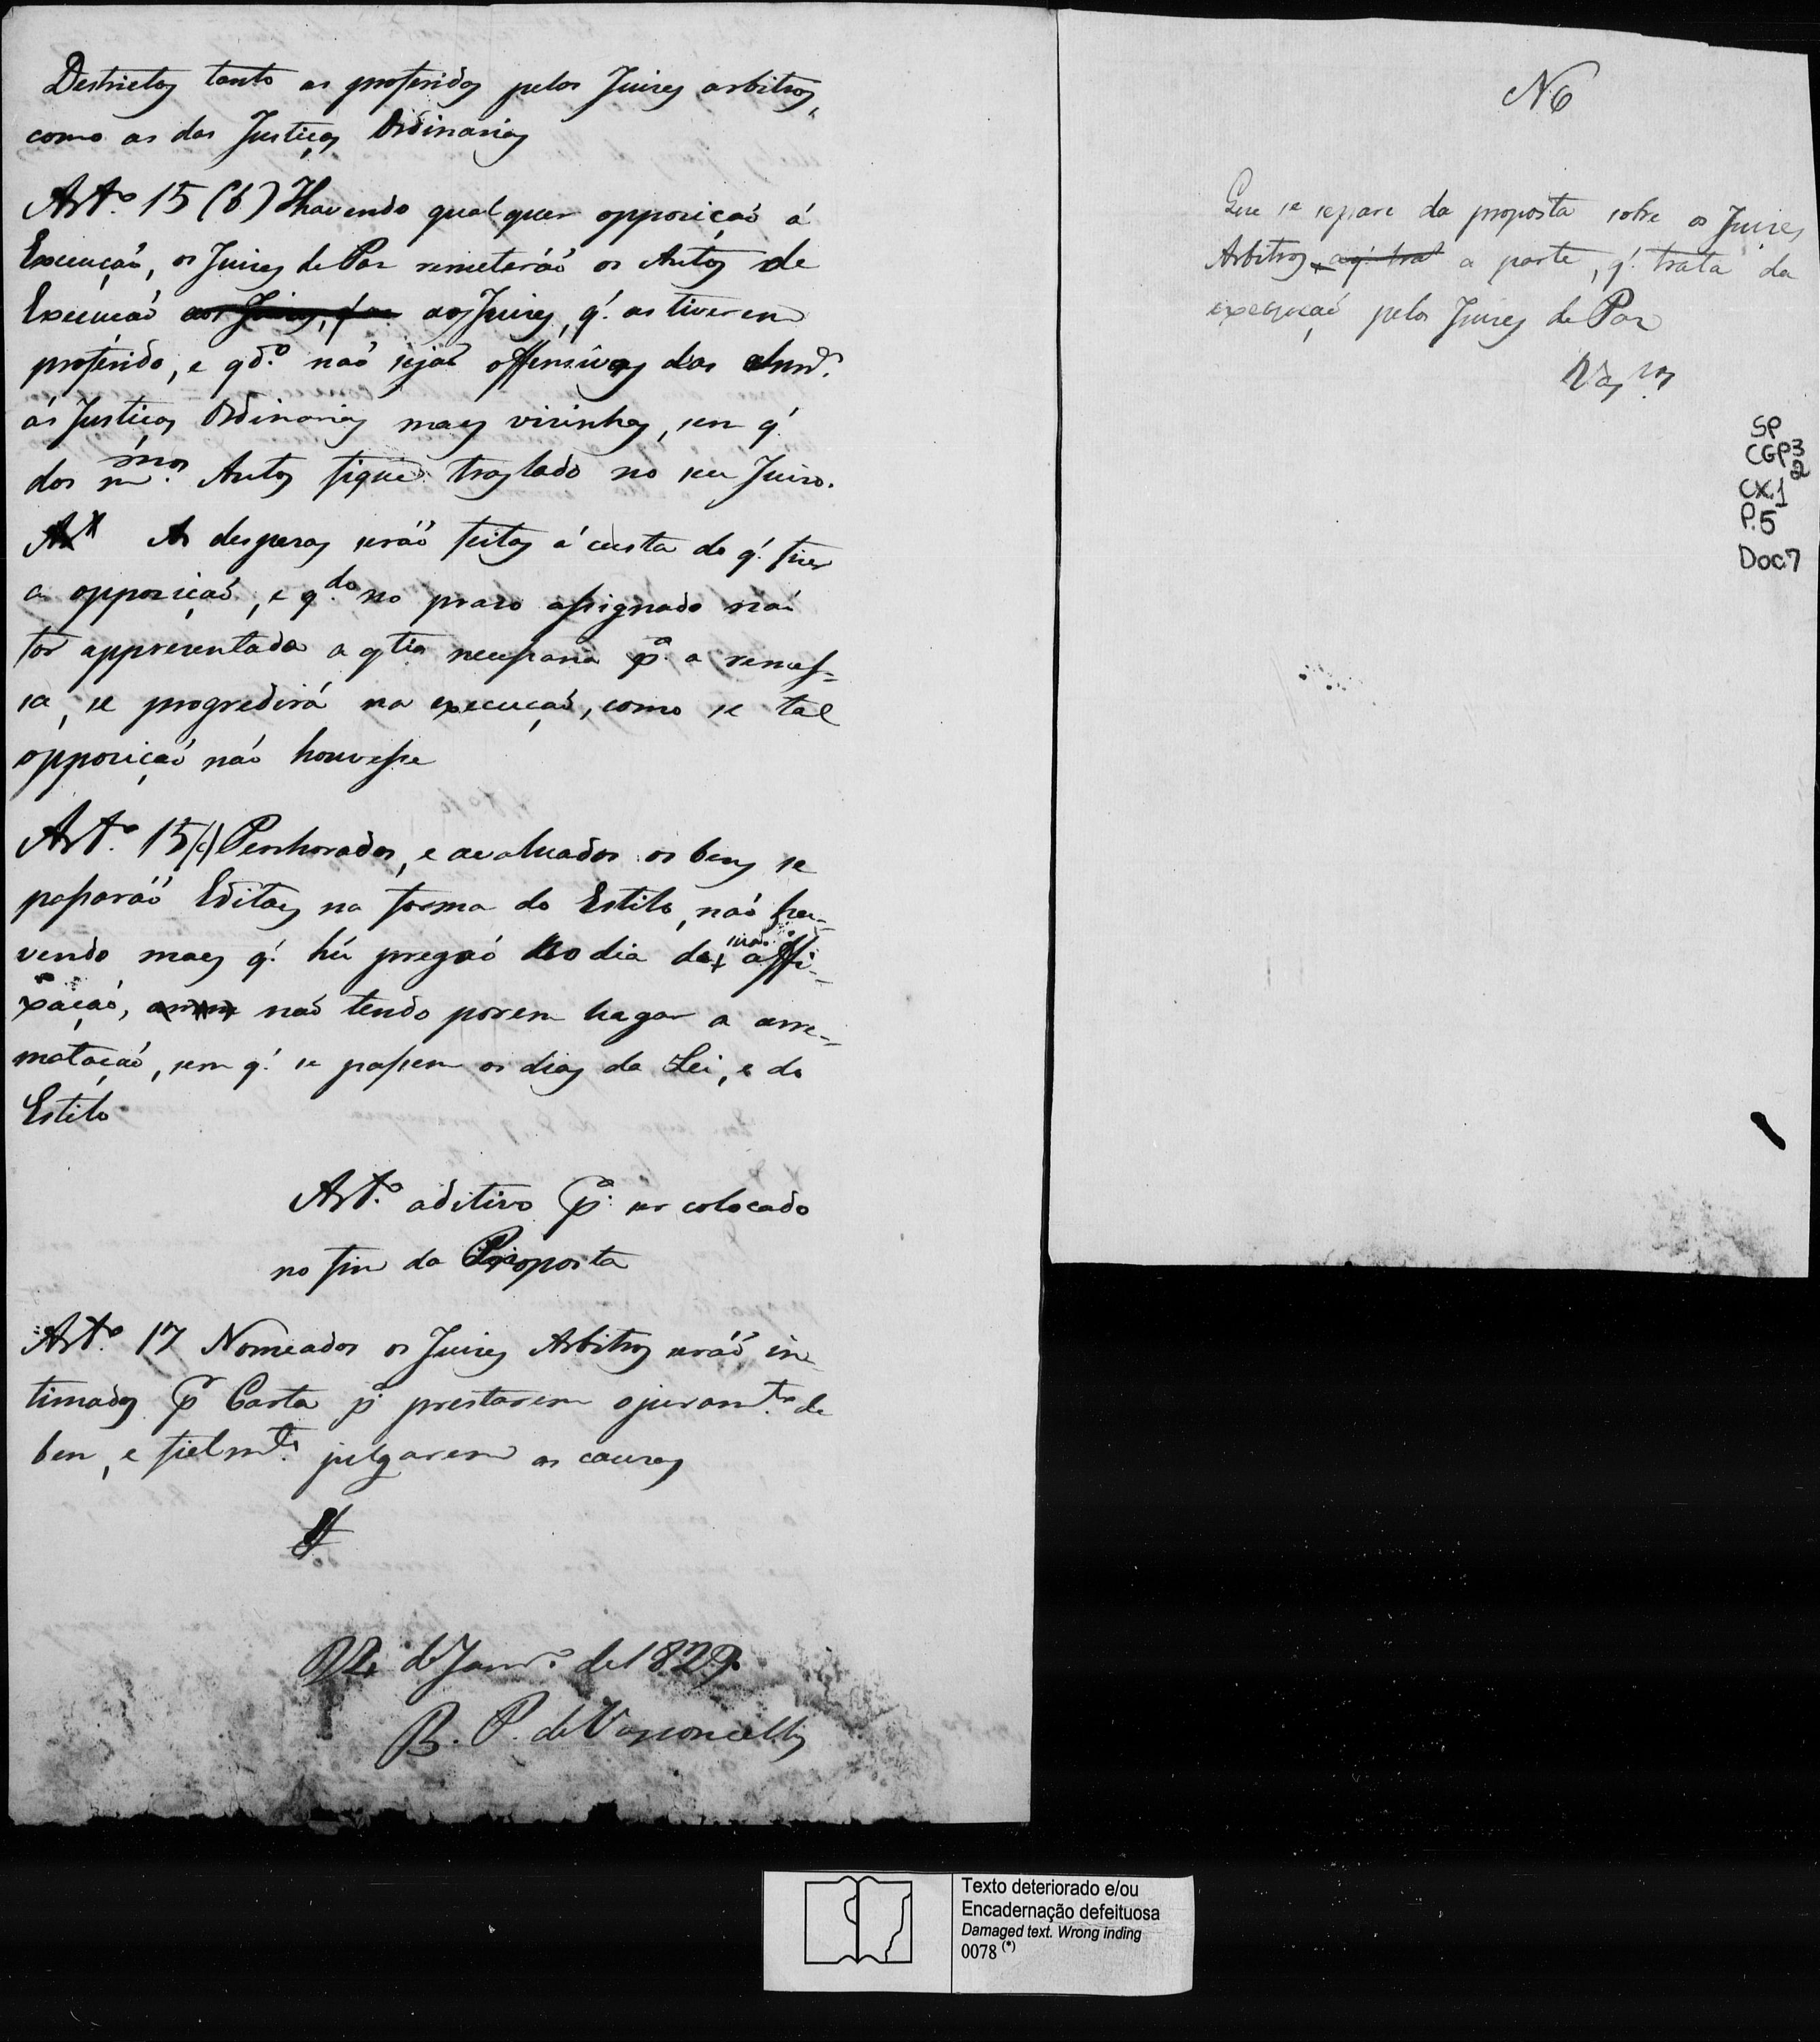 Destrictos tanto as proferidas pelos Juizes arbitros,
como as das Justiças Ordinarias
Art.º 15 (b) Havendo qualquer opposiçaõ á
Execuçaõ, os Juizes de Paz remeteráõ os Autos de
Execuçaõ aos Juizes, que aos Juizes, q.' as tiverem
proferido, e qd.º naõ sejaõ offensivas das
ás Justiças Ordinarias mais visinhas, sem q.'
dos m.mos Autos fique traslado no seu Juizo.
Art As despezas seráõ feitas á custa do q.' fizer
a opposiçaõ, e q.do no prazo assignado naõ
for appresentada a qtia necessaria p.ª a remes-
sa, se progredirá na execuçaõ, como se tal
opposiçaõ naõ houvesse
Art.º 15 (c) Penhorados, e avaluados os bens se
passaráõ Editaes na forma do Estilo, naõ ha-
vendo mais q.' hú pregaõ no dia da sua affi-
xaçaõ, naõ tendo porem lugar a arre-
mataçaõ, sem q.' se passem os dias da Lei, e do
Estilo
Art.º aditivo p.ª ser colocado
no fim da Proposta
Art.º 17 Nomeados os Juizes Arbitros seráõ in-
timados p.r Carta p.ª prestarem o juram.to de
bem, e fielm.te julgarem as causas
de Janr.º de 1829.
B. P. de Vasconcellos
N6
Que se separe da proposta sobre os Juizes
Arbitros, a q.' trat a parte, q.' trata da
execuçaõ pelos Juizes de Paz
Vas.los
SP
CGP3
2
CX.1
P.5
Doc7
Texto deteriorado e/ou
Encadernação defeituosa
Damaged text. Wrong inding
0078 (*)